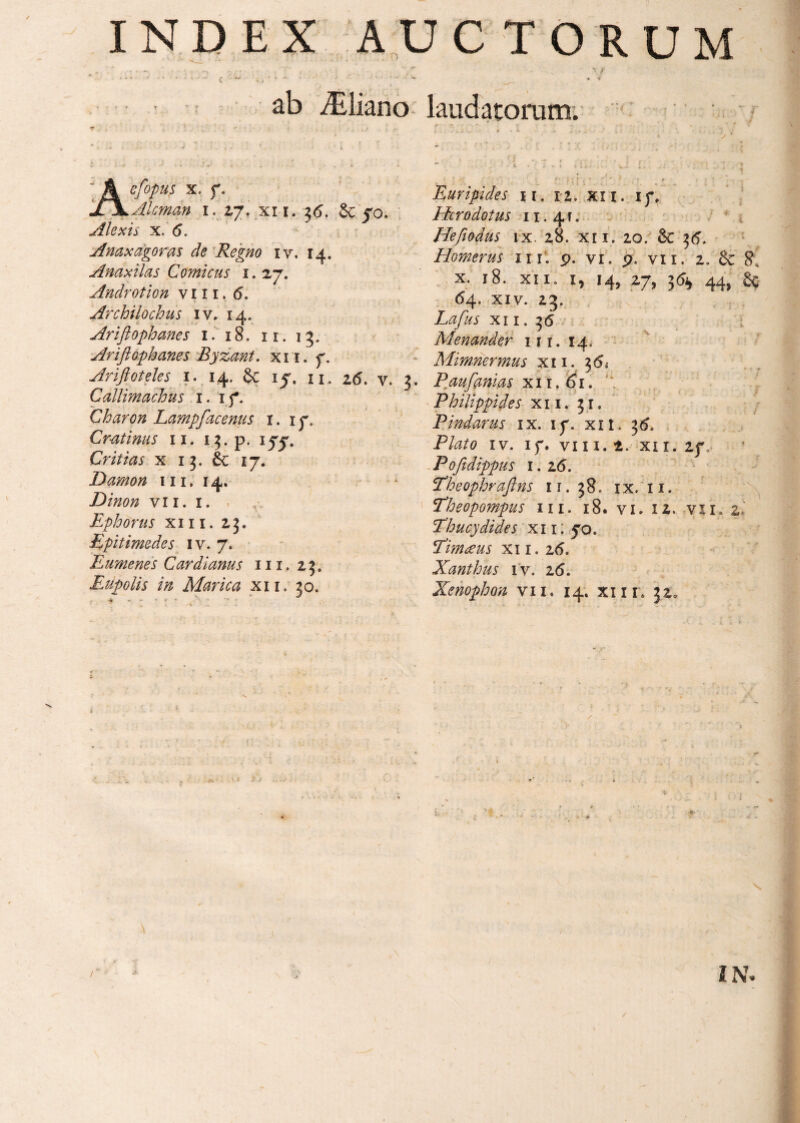 INDEX AUCTORUM
ab Æliano laudatorum.
Aeſopus x. 5.
Alcman I. 27. XII. 36. & 50.
Alexis x. 6.
Anaxagoras de Regno IV. 14.
Anaxilas Comicus I. 27.
Androtion VIII. 6.
Archilochus IV. 14.
Ariſtophanes I. 18. II. 13.
Ariſtophanes Byzant. XII. 5.
Ariſtoteles I. 14. & 15. II. 26. V. 3.
Callimachus I. 15.
Charon Lampſacenus I. 15.
Cratinus II. 13. p. 155.
Critias X 13. & 17.
Damon III. 14.
Dinon VII. I.
Ephorus XIII. 23.
Epitimedes IV. 7.
Eumenes Cardianus III. 23.
Eupolis in Marica XII. 30.
Euripides II. 12. XII. 15.
Herodotus II. 41.
Heſiodus IX. 28. XII. 20. & 36.
Homerus III. 9. VI. 9. VII. 2. & 8.
X. 18. XII. 1, 14, 27, 36, 44, &
64. XIV. 23.
Laſus XII. 36
Menander III. 14.
Mimnermus XII. 36.
Pauſanias XII. 61.
Philippides XII. 31.
Pindarus IX. 15. XII. 36.
Plato IV. 15. VIII. 2. XII. 25.
Poſidippus I. 26.
Theophraſtns II. 38. IX. II.
Theopompus III. 18. VI. 12. VII. 2.
Thucydides XII. 50.
Timæus XII. 26.
Xanthus IV. 26.
Xenophon VII. 14. XIII. 32.
IN-